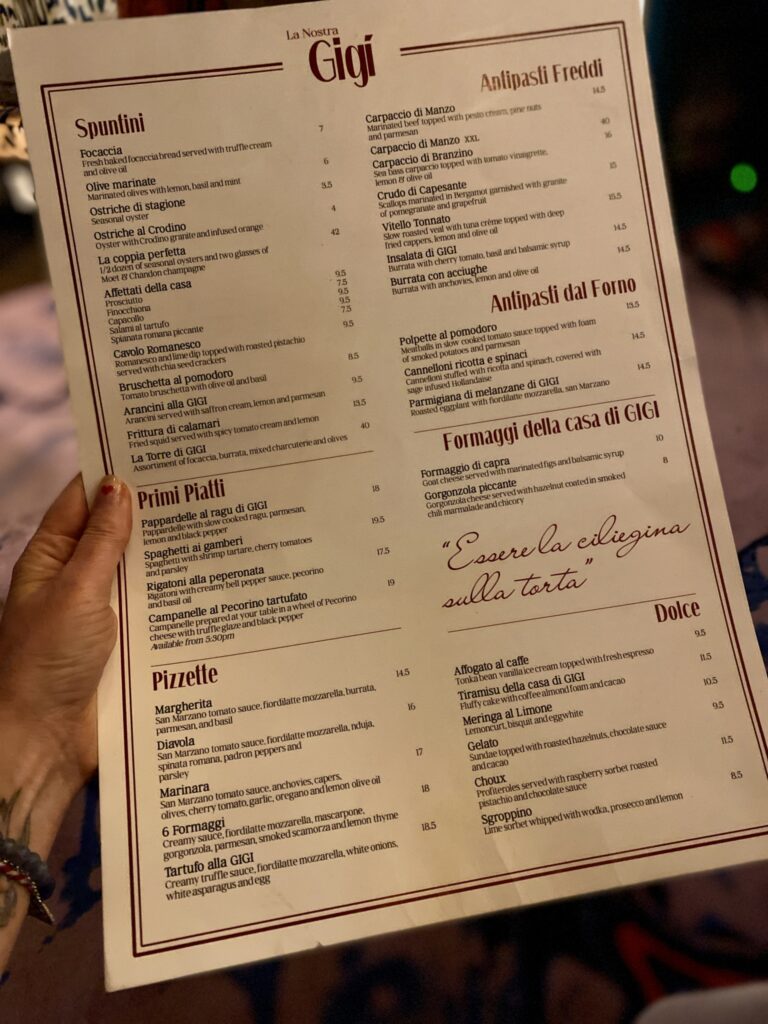 La Nostra
Gigí
Spuntini
Focaccia 7
Fresh baked focaccia bread served with truffle cream
and olive oil
Olive marinate 6
Marinated olives with lemon, basil and mint
Ostriche di stagione 3.5
Seasonal oyster
Ostriche al Crodino 4
Oyster with Crodino granite and infused orange
La coppia perfetta 42
1/2 dozen of seasonal oysters and two glasses of
Moet & Chandon champagne
Affettati della casa
Prosciutto 9.5
Finocchiona 7.5
Capacollo 9.5
Salami al tartufo 9.5
Spianata romana piccante 7.5
Cavolo Romanesco 9.5
Romanesco and lime dip topped with roasted pistachio
served with chia seed crackers
Bruschetta al pomodoro 8.5
Tomato bruschetta with olive oil and basil
Arancini alla GIGI 9.5
Arancini served with saffron cream, lemon and parmesan
Frittura di calamari 13.5
Fried squid served with spicy tomato cream and lemon
La Torre di GIGI 40
Assortment of focaccia, burrata, mixed charcuterie and olives
Primi Piatti
Pappardelle al ragu di GIGI 18
Pappardelle with slow cooked ragu, parmesan,
lemon and black pepper
Spaghetti ai gamberi 19.5
Spaghetti with shrimp tartare, cherry tomatoes
and parsley
Rigatoni alla peperonata 17.5
Rigatoni with creamy bell pepper sauce, pecorino
and basil oil
Campanelle al Pecorino tartufato 19
Campanelle prepared at your table in a wheel of Pecorino
cheese with truffle glaze and black pepper
Available from 5:30pm
Pizzette
Margherita 14.5
San Marzano tomato sauce, fiordilatte mozzarella, burrata,
parmesan, and basil
Diavola 16
San Marzano tomato sauce, fiordilatte mozzarella, nduja,
spinata romana, padron peppers and
parsley
Marinara 17
San Marzano tomato sauce, anchovies, capers,
olives, cherry tomato, garlic, oregano and lemon olive oil
6 Formaggi 18
Creamy sauce, fiordilatte mozzarella, mascarpone,
gorgonzola, parmesan, smoked scamorza and lemon thyme
Tartufo alla GIGI 18.5
Creamy truffle sauce, fiordilatte mozzarella, white onions,
white asparagus and egg
Antipasti Freddi
Carpaccio di Manzo 14.5
Marinated beef topped with pesto cream, pine nuts
and parmesan
Carpaccio di Manzo XXL 40
Carpaccio di Branzino 16
Sea bass carpaccio topped with tomato vinaigrette,
lemon & olive oil
Crudo di Capesante 15
Scallops marinated in Bergamot garnished with granite
of pomegranate and grapefruit
Vitello Tonnato 15.5
Slow roasted veal with tuna crème topped with deep
fried cappers, lemon and olive oil
Insalata di GIGI 14.5
Burrata with cherry tomato, basil and balsamic syrup
Burrata con acciughe 14.5
Burrata with anchovies, lemon and olive oil
Antipasti dal Forno
Polpette al pomodoro 13.5
Meatballs in slow cooked tomato sauce topped with foam
of smoked potatoes and parmesan
Cannelloni ricotta e spinaci 14.5
Cannelloni stuffed with ricotta and spinach, covered with
sage infused Hollandaise
Parmigiana di melanzane di GIGI 14.5
Roasted eggplant with fiordilatte mozzarella, san Marzano
Formaggi della casa di GIGI
Formaggio di capra 10
Goat cheese served with marinated figs and balsamic syrup
Gorgonzola piccante 8
Gorgonzola cheese served with hazelnut coated in smoked
chili marmalade and chicory
"Essere la ciliegina
sulla torta"
Dolce
Affogato al caffe 9.5
Tonka bean vanilla ice cream topped with fresh espresso
Tiramisu della casa di GIGI 11.5
Fluffy cake with coffee almond foam and cacao
Meringa al Limone 10.5
Lemoncurt, bisquit and eggwhite
Gelato 9.5
Sundae topped with roasted hazelnuts, chocolate sauce
and cacao
Choux 11.5
Profiteroles served with raspberry sorbet roasted
pistachio and chocolate sauce
Sgroppino 8.5
Lime sorbet whipped with wodka, prosecco and lemon